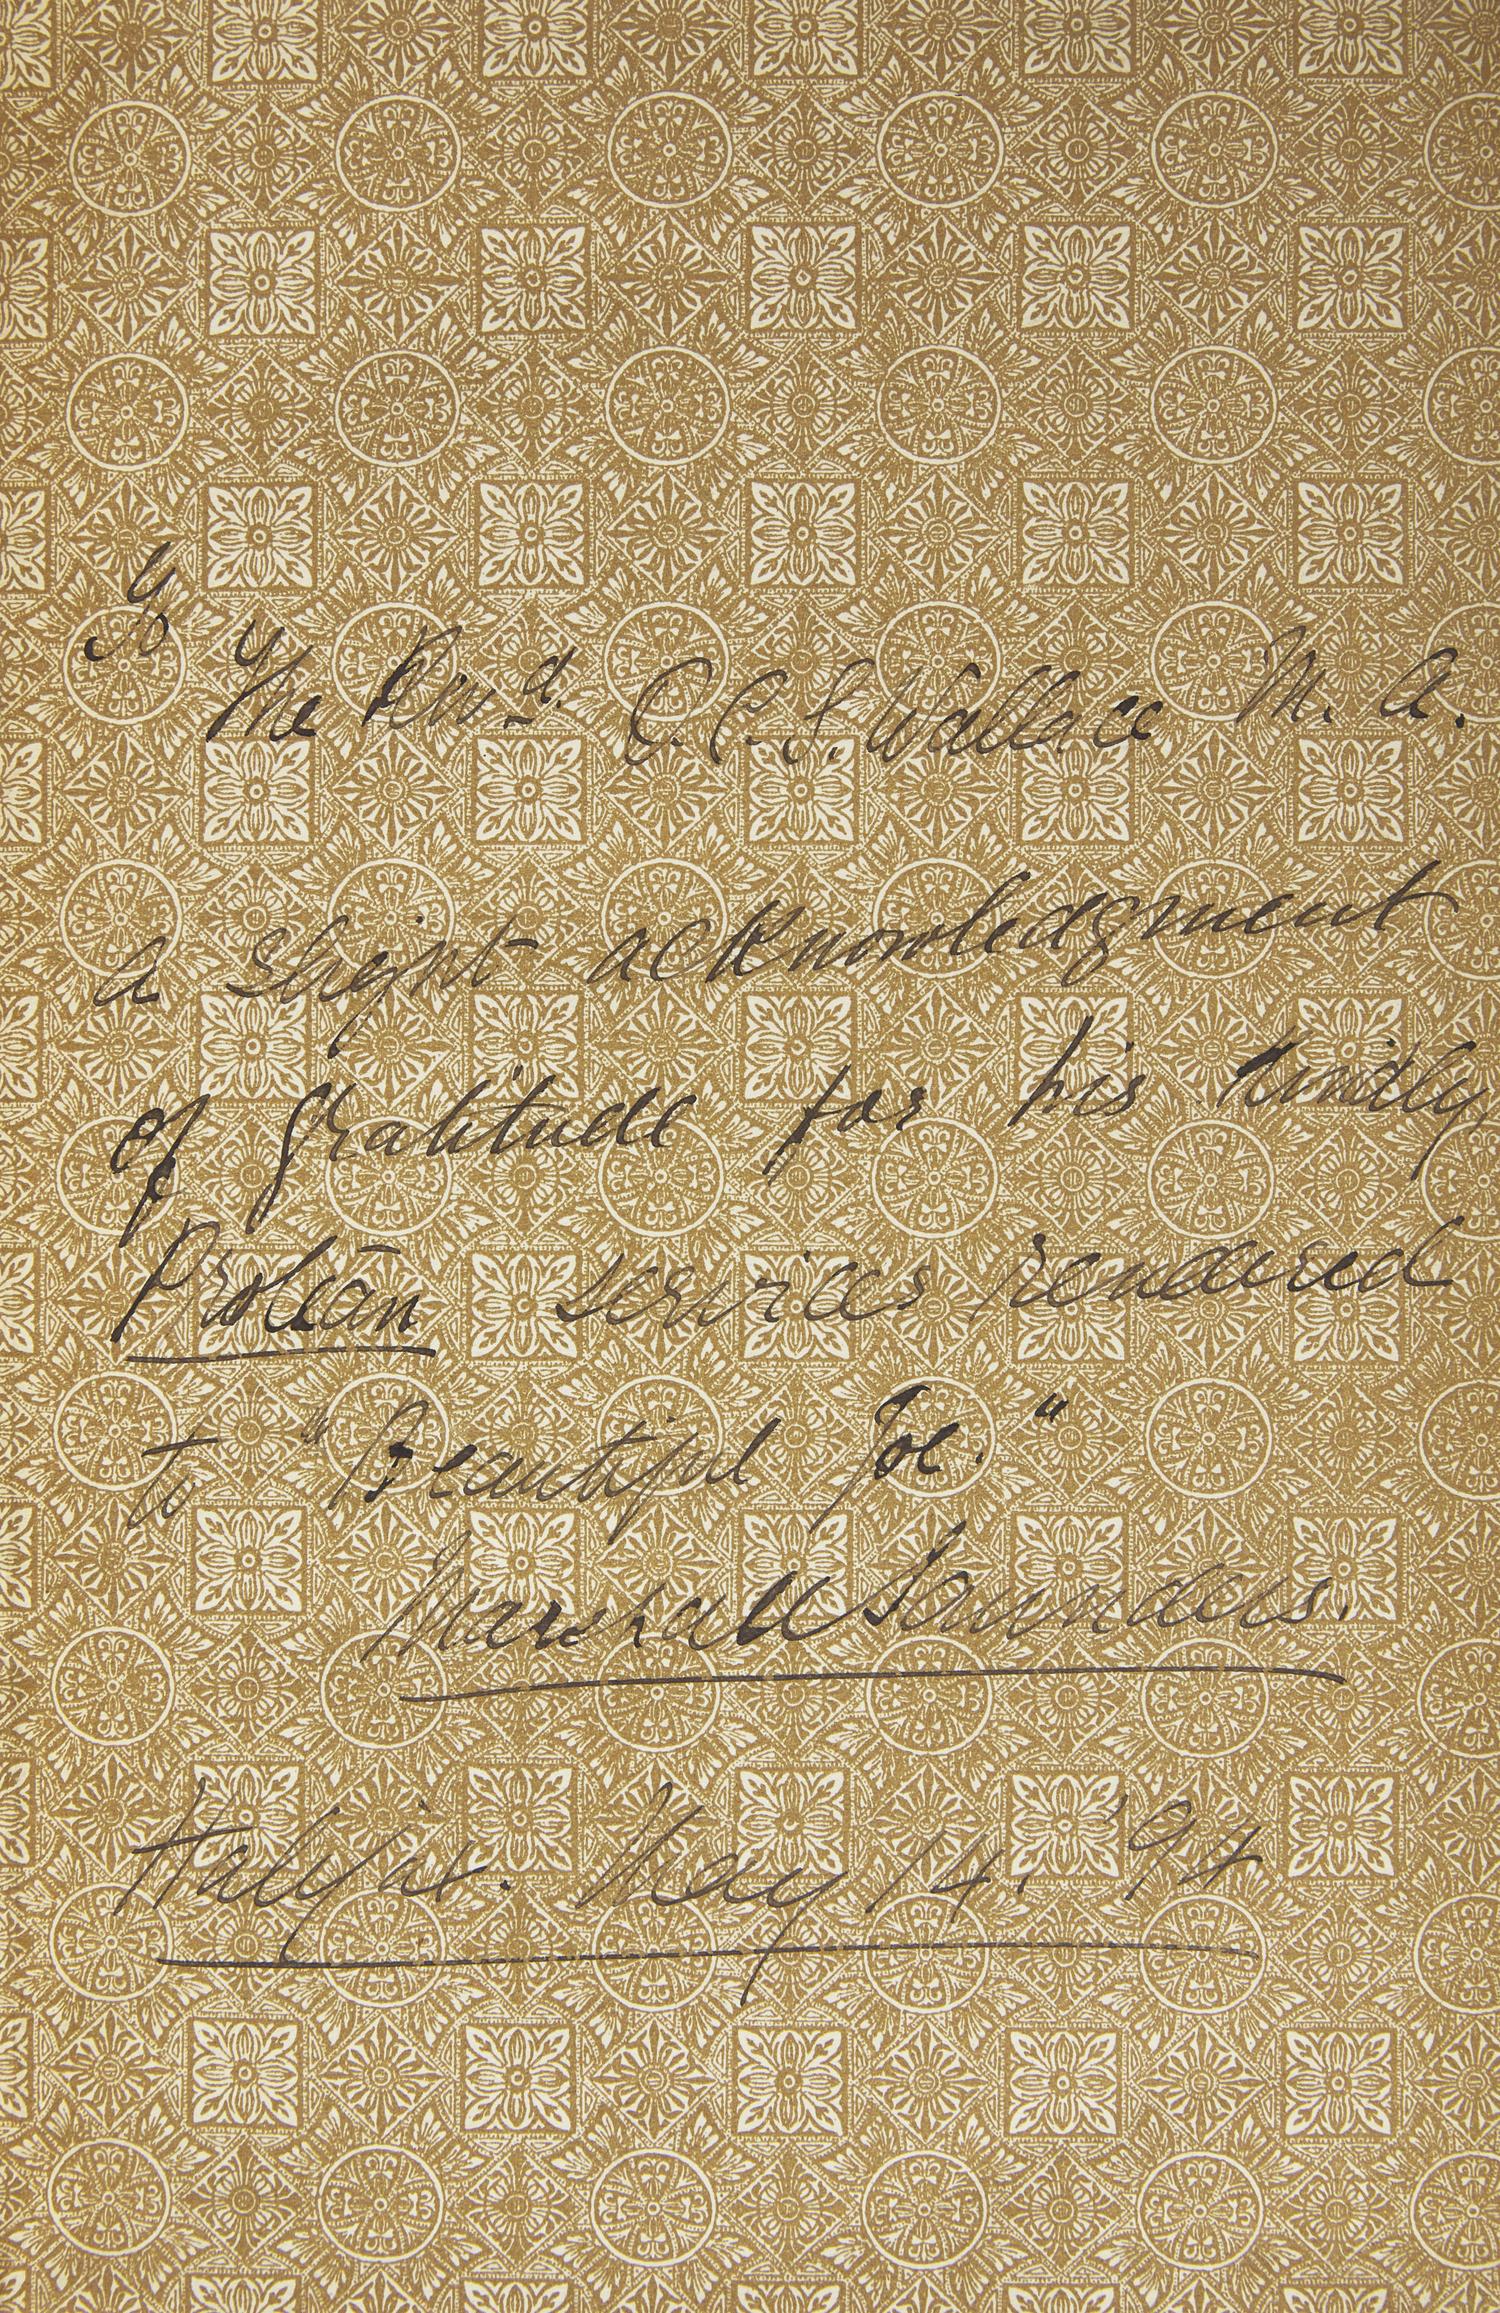 To
The Revd. O. C. S. Wallace M. A.
a slight acknowledgment
of gratitude for his kindly,
Protean services rendered
to "Beautiful Joe."
Marshall Saunders.
Halifax. May 14. '94